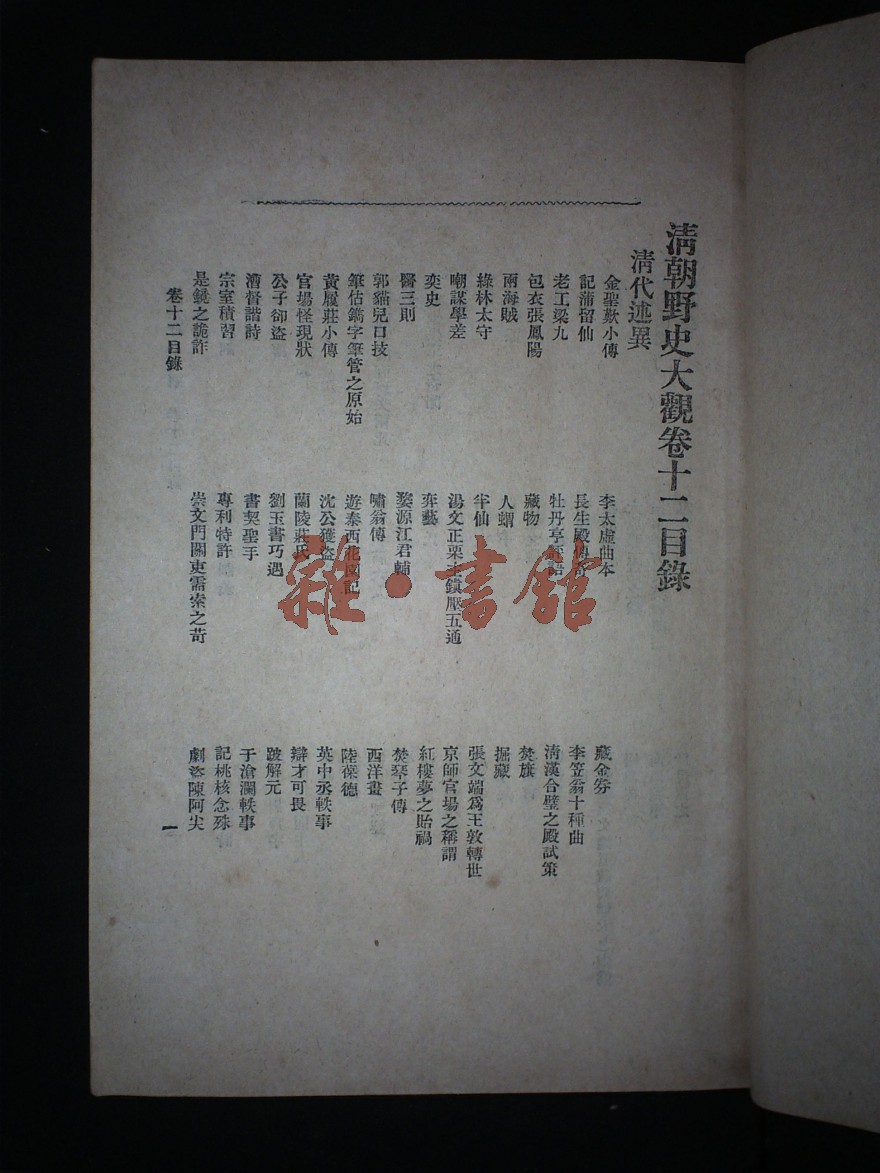 清朝野史大觀卷十二目錄
清代述異
金聖歎小傳
李太虛曲本
藏金券
記蒲留仙
長生殿傳奇
李笠翁十種曲
老工梁九
牡丹亭評語
滿漢合璧之殿試策
包衣張鳳陽
藏物
焚旗
兩海賊
人蝟
掘藏
綠林太守
半仙
張文端爲王敦轉世
嘲謀學差
湯文正栗主鎮壓五通
京師官場之稱謂
奕史
弈藝
紅樓夢之貽禍
醫三則
婺源江君輔
焚琴子傳
郭貓兒口技
嘯翁傳
西洋畫
筆估鐫字筆管之原始
遊泰西花園記
陸葆德
黃履莊小傳
沈公獲盜
英中丞軼事
官場怪現狀
蘭陵莊氏
辯才可畏
公子卻盜
劉玉書巧遇
跛解元
漕督諧詩
書契聖手
于滄瀾軼事
宗室積習
專利特許
記桃核念珠
是鏡之詭詐
崇文門關吏需索之苛
劇盜陳阿尖
卷十二目錄
一
雜·書館